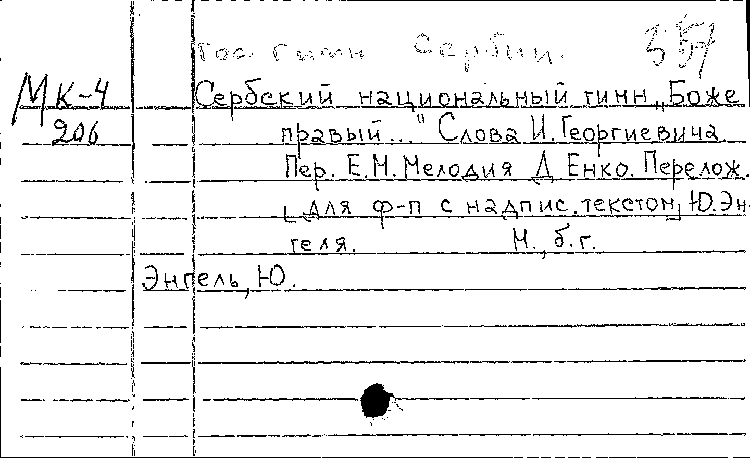 Гос. гимн Сербии. 357
МК-4 Сербский национальный гимн „Боже
206 правый..." Слова И. Георгиевича.
Пер. Е.М. Мелодия Д Енко. Перелож.
[для ф-п с надпис. текстом] Ю. Эн-
геля. М., б. г.
Энгель, Ю.